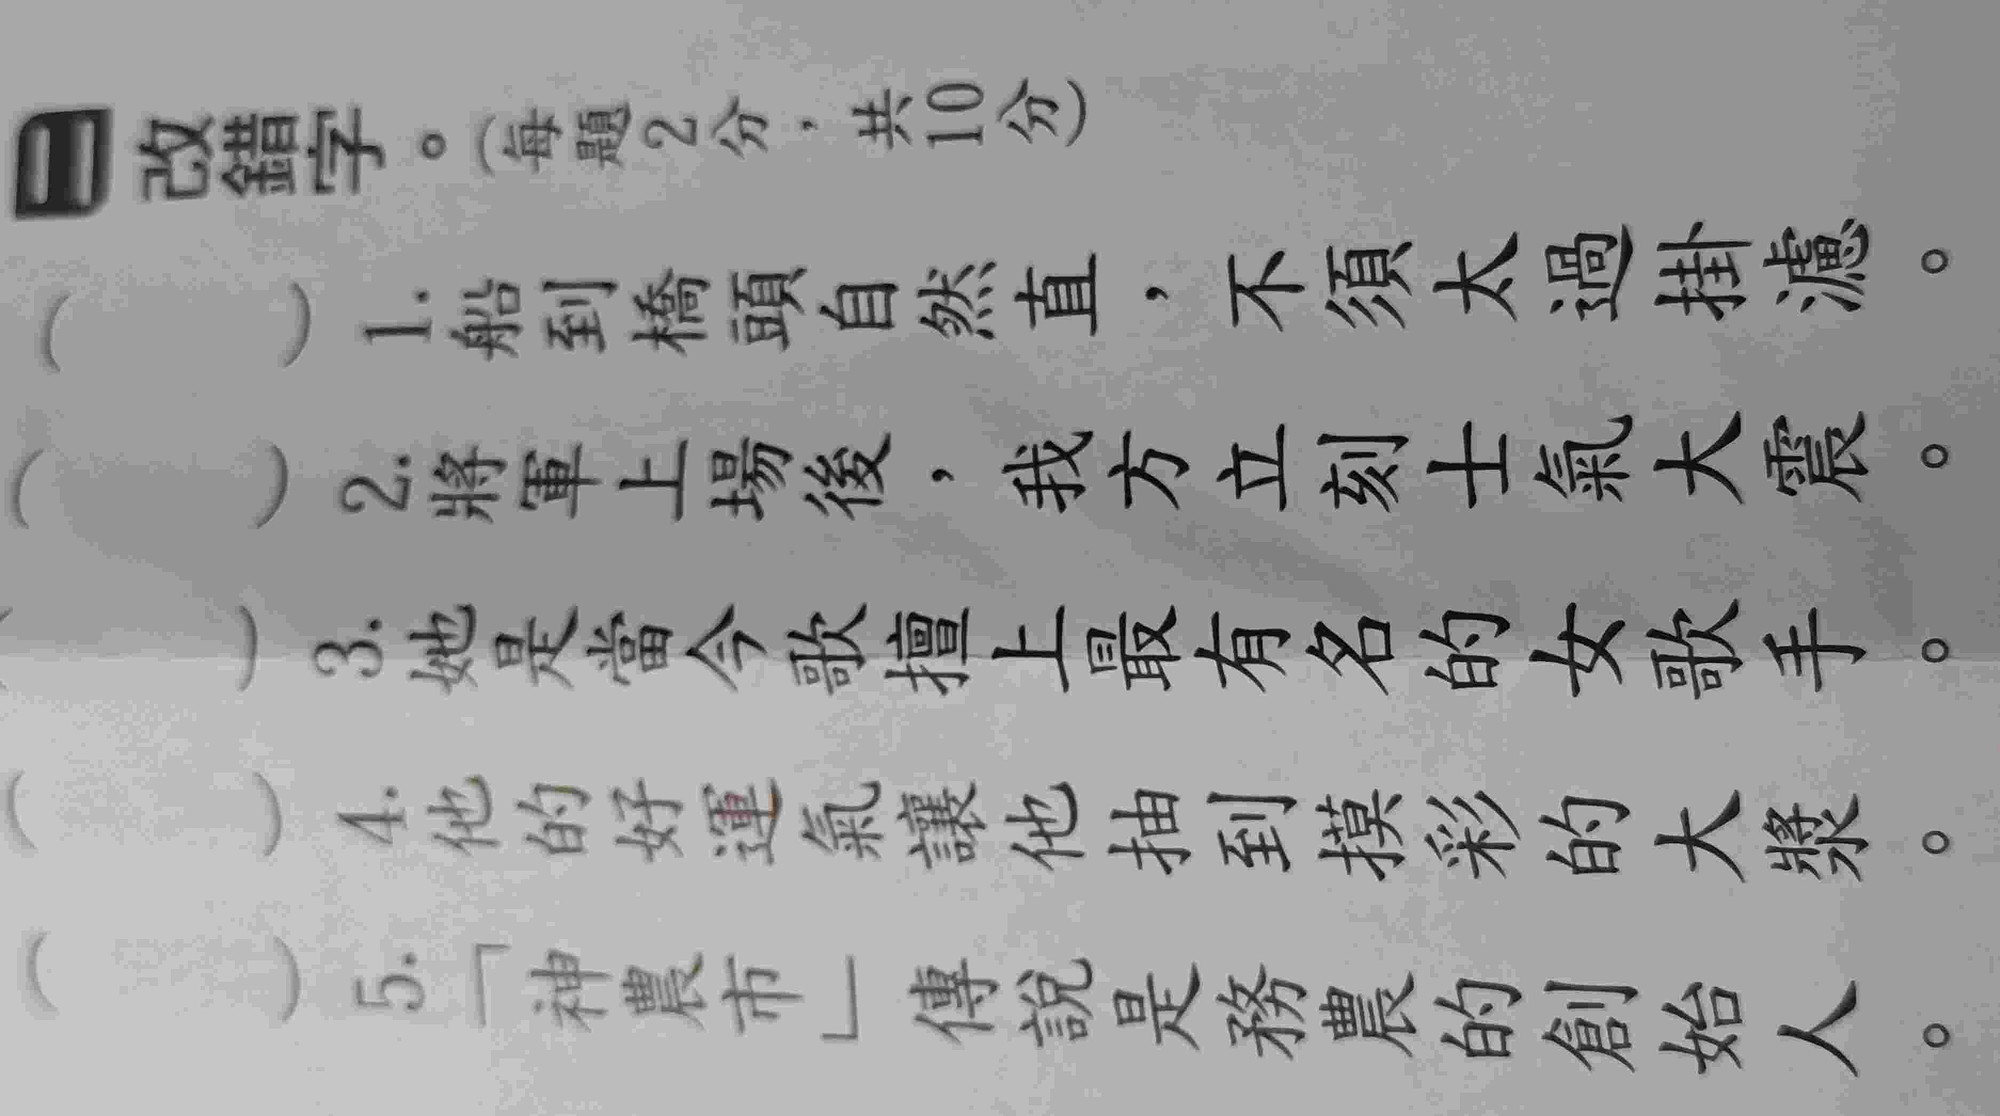 二改錯字。(每題2分，共10分)
(　)1.船到橋頭自然直，不須太過掛濾。
(　)2.將軍上場後，我方立刻士氣大震。
(　)3.她是當今歌擅上最有名的女歌手。
(　)4.他的好運氣讓他抽到摸彩的大漿。
(　)5.「神農市」傳說是務農的創始人。